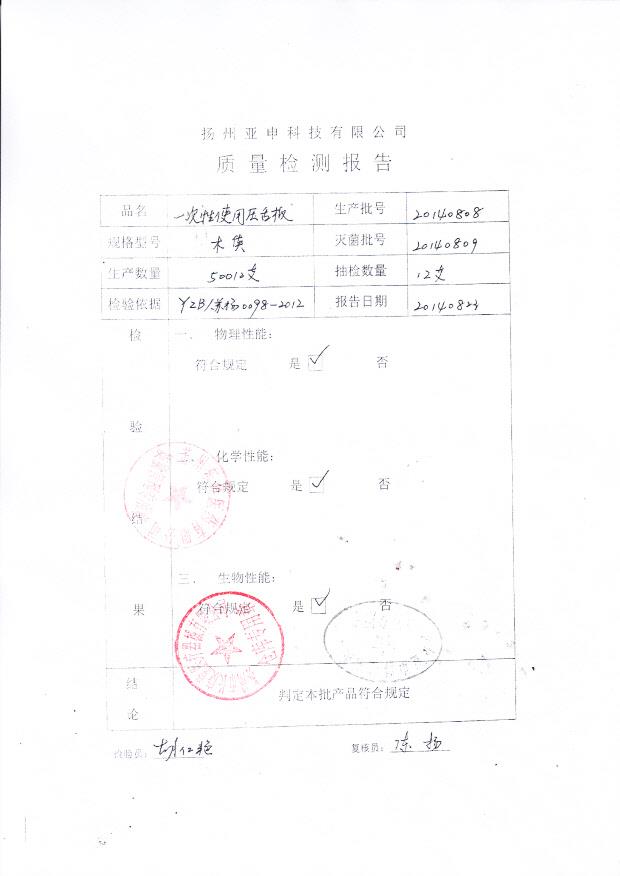 扬州亚申科技有限公司
质量检测报告
品名 一次性使用压舌板 生产批号 20140808
规格型号 木质 灭菌批号 20140809
生产数量 50012支 抽检数量 12支
检验依据 YZB/苏扬0098-2012 报告日期 20140823
检验结果
一、 物理性能:
符合规定 是 ✓ 否
二、 化学性能:
符合规定 是 ✓ 否
三、 生物性能:
符合规定 是 ✓ 否
结论 判定本批产品符合规定
检验员: 胡仁艳 复核员: 陈扬